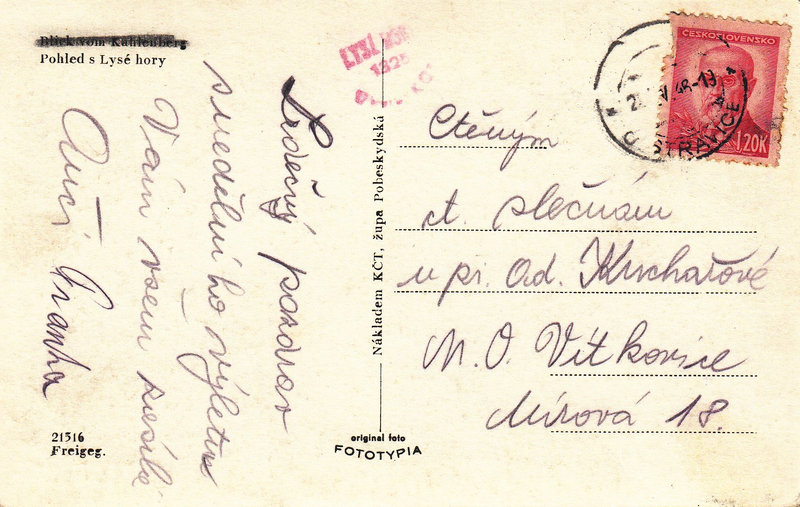 Blick vom Kahlenberg
Pohled s Lysé hory
Srdečný pozdrav
s nedělního výletu
Vám všem zasílá
Franta
21516
Freigeg.
Nákladem KČT, župa Pobeskydská
original foto
FOTOTYPIA
LYSÁ HORA
1325
ČESKOSLOVENSKO
1.20K
OSTRAVICE
Ctěným
ct. slečnám
u pí. Ad. Kuchařové
M. O. Vítkovice
Mírová 18.